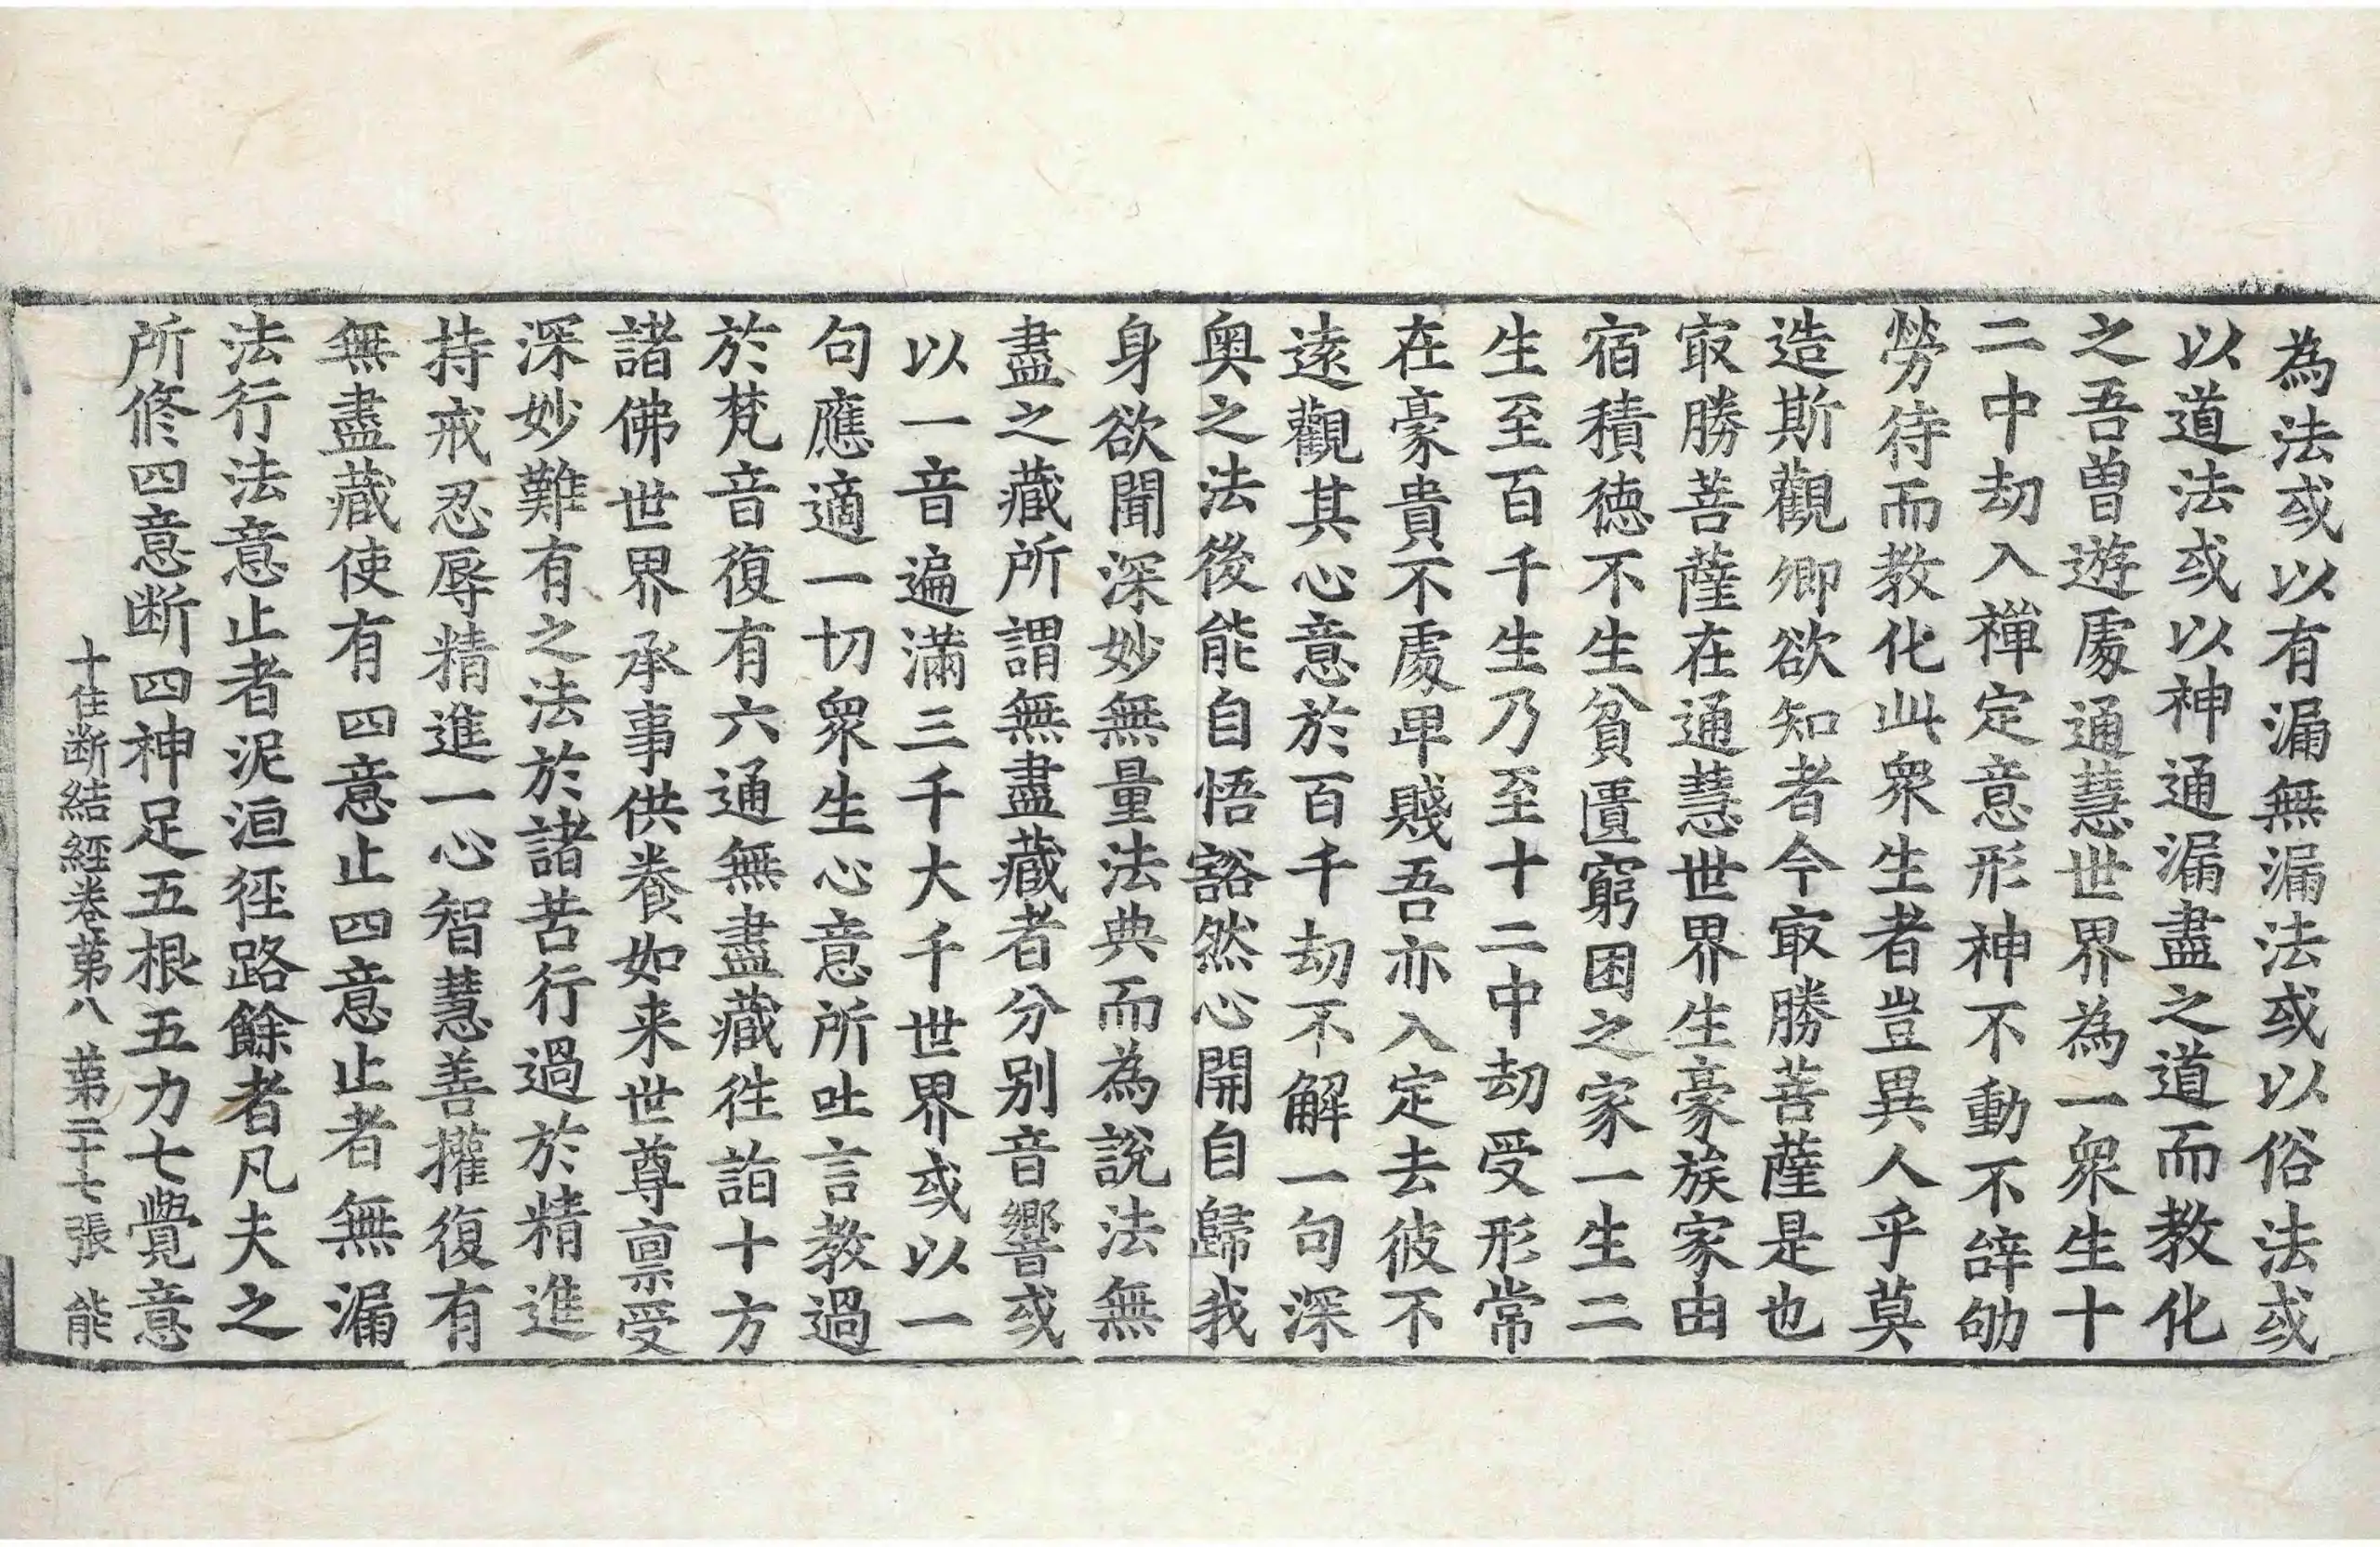 為法或以有漏無漏法或以俗法或
以道法或以神通漏盡之道而教化
之吾曾遊處通慧世界為一衆生十
二中劫入禪定意形神不動不辭劬
勞待而教化此衆生者豈異人乎莫
造斯觀卿欲知者今㝡勝菩薩是也
㝡勝菩薩在通慧世界生豪族家由
宿積德不生貧匱窮困之家一生二
生至百千生乃至十二中劫受形常
在豪貴不處卑賤吾亦入定去彼不
遠觀其心意於百千劫不解一句深
奥之法後能自悟豁然心開自歸我
身欲聞深妙無量法典而為說法無
盡之藏所謂無盡藏者分别音響或
以一音遍滿三千大千世界或以一
句應適一切衆生心意所吐言教過
於梵音復有六通無盡藏往詣十方
諸佛世界承事供養如来世尊禀受
深妙難有之法於諸苦行過於精進
持戒忍辱精進一心智慧善權復有
無盡藏使有四意止四意止者無漏
法行法意止者泥洹徑路餘者凡夫之
所修四意断四神足五根五力七覺意
十住断結經卷第八 第二十七張 能